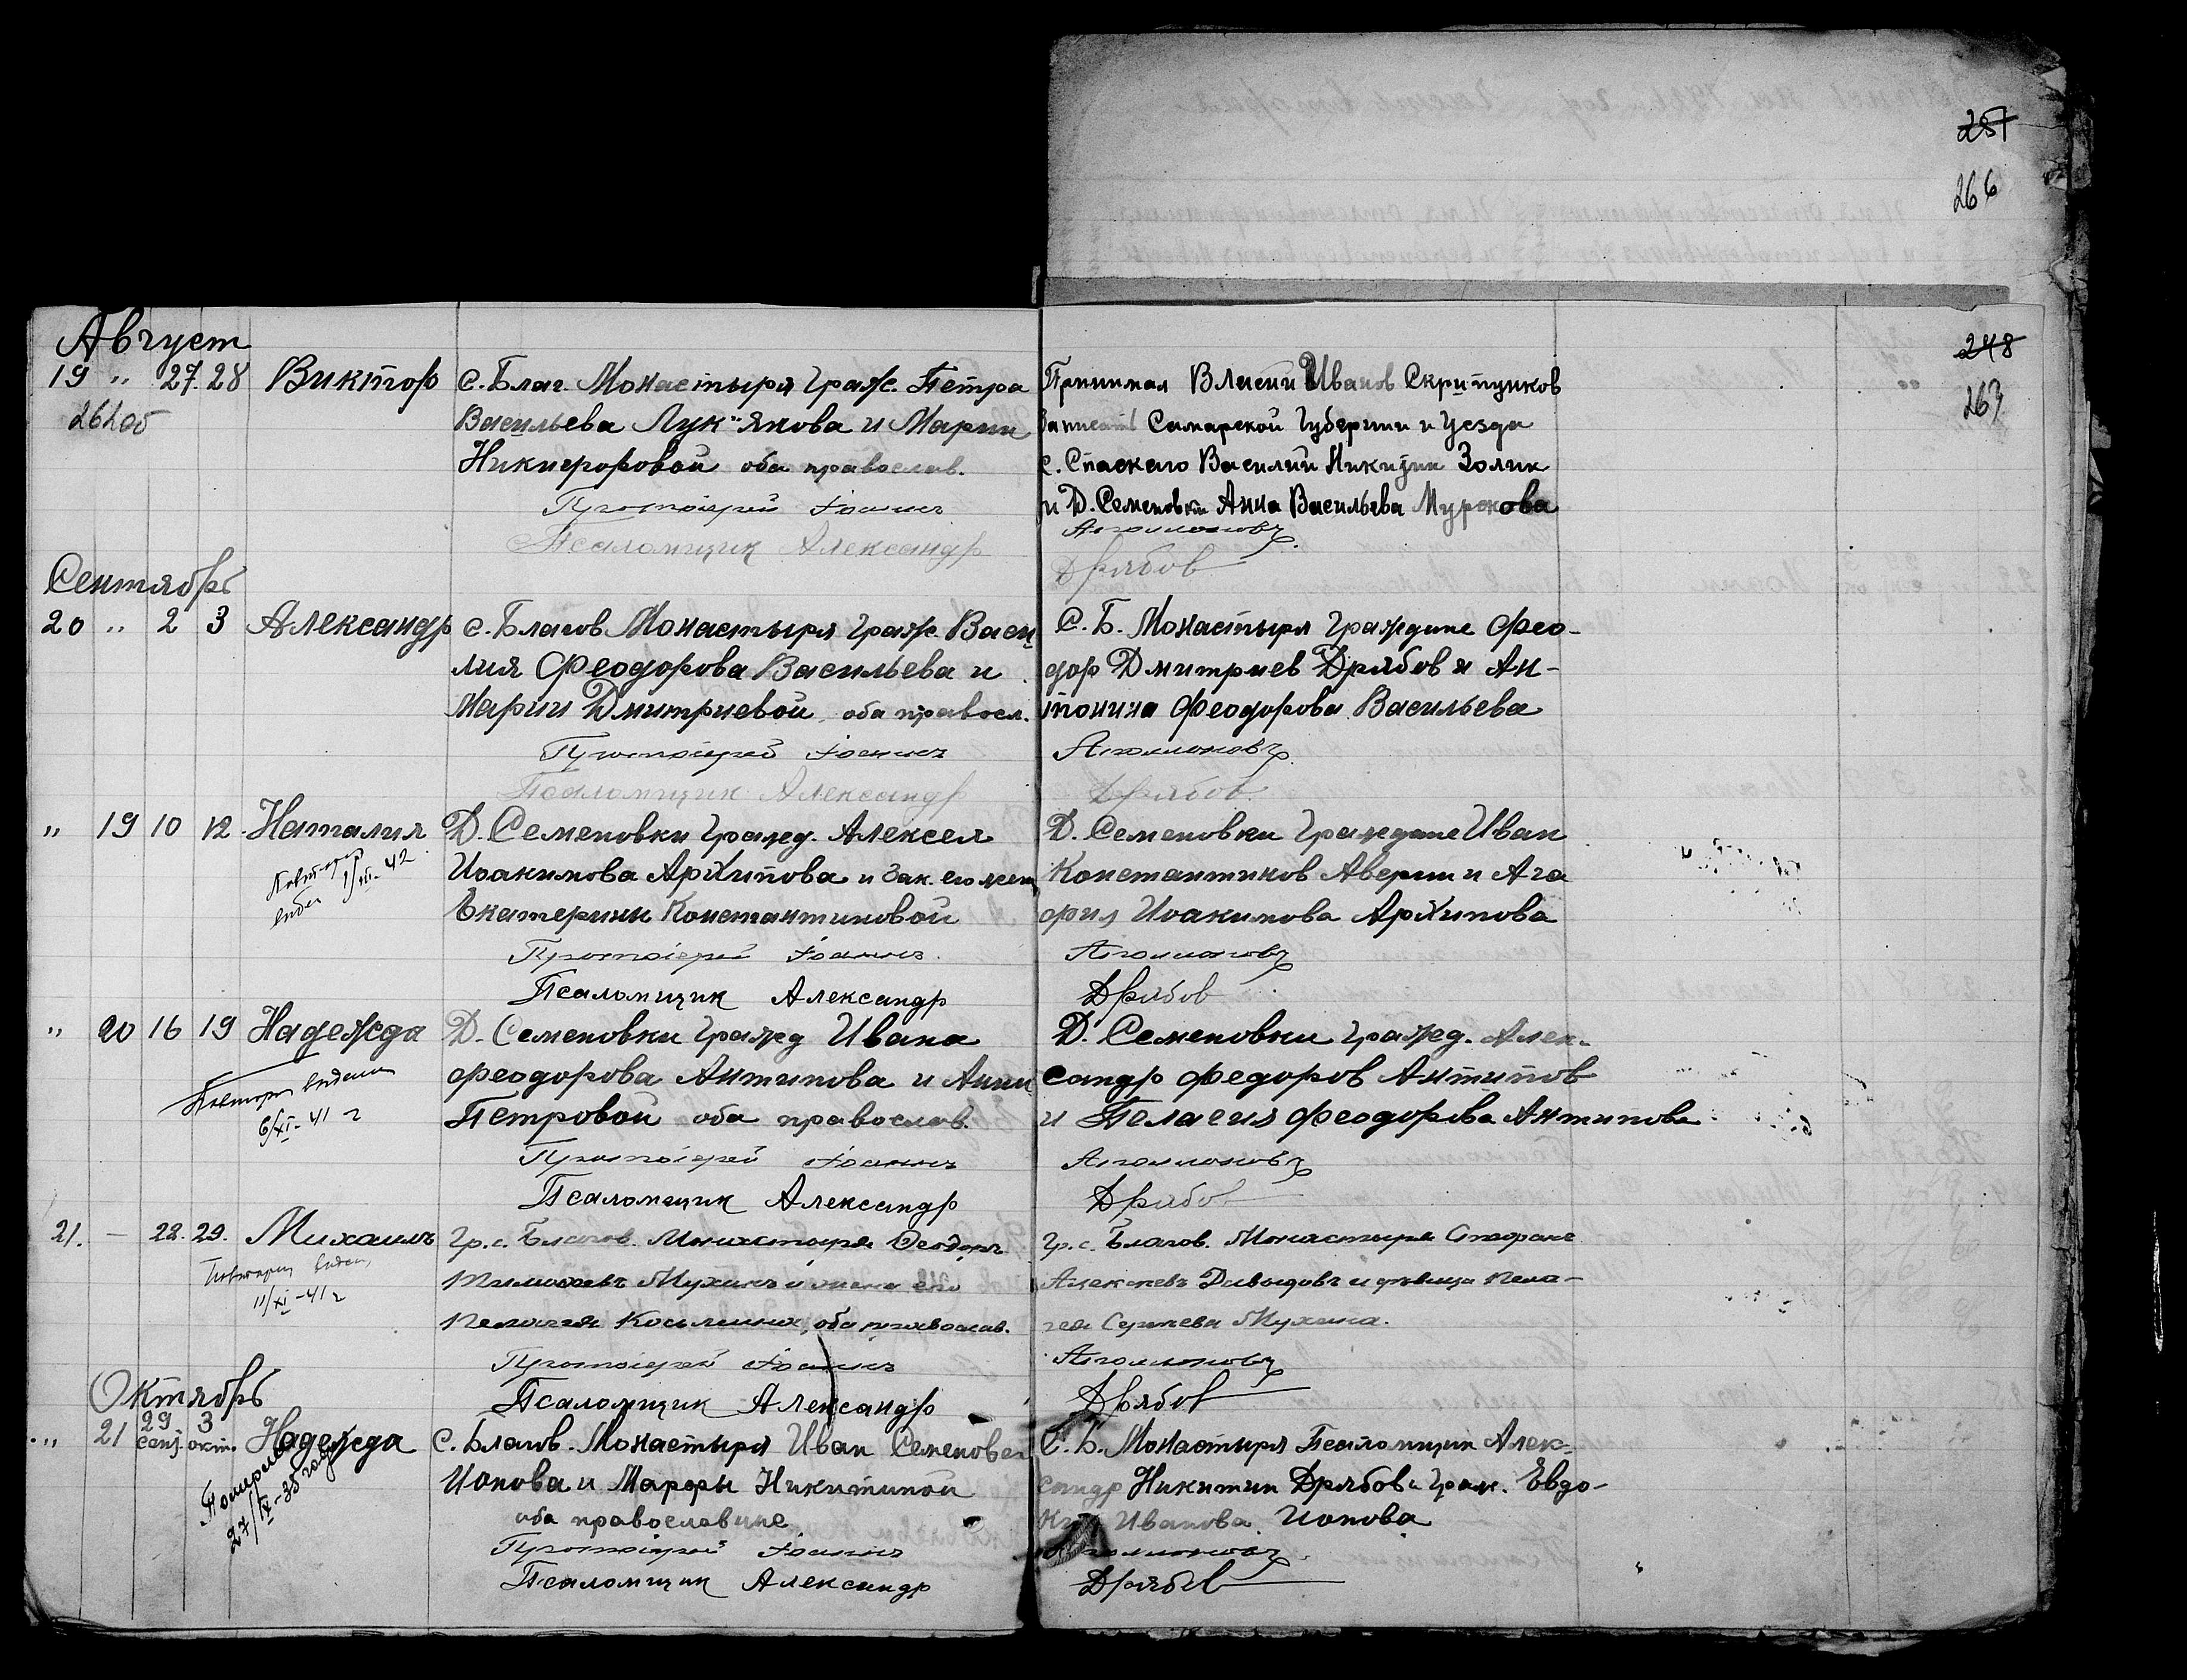 257
266
Август
248
263
19 " 27. 28 Виктор
262об
с. Благ. Монастыря Граж. Петра
Васильева Лук"янова и Марии
Никифоровой оба православ.
Протоіерей Іоаннъ
Псаломщик Александр
Принимал Власий Иванов Скрипунков
Самарской Губернии и Уезда
с. Спаскаго Василий Никитин Золин
и Д. Семеновки Анна Васильева
Аполлоновъ
Дрябов
Сентябрь
20 " 2 3 Александр
с. Благов Монастыря Граж. Васи
лия Феодорова Васильева и
Марии Дмитриевой, оба правосл.
Протоіерей Іоаннъ
Псаломщик Александр
С. Б. Монастыря Граждане Фео-
дор Дмитриев Дрябов и Ан-
тонина Феодорова Васильева
Аполлоновъ
Дрябов
" 19 10 12 Наталия
1/III-42
Д. Семеновки Гражд. Алексея
Иоакимова Архипова и Зак. его жены
Екатерины Константиновой
Протоіерей Іоаннъ
Псаломщик Александр
Д. Семеновки Граждане Иван
Константинов Аверин и Ага
фия Иоакимова Архипова
Аполлоновъ
Дрябов
" 20 16 19 Надежда
Повторн выдана
6/XI-41 г
Д. Семеновки Гражд Ивана
Феодорова Антипова и Анны
Петровой оба православ.
Протоіерей Іоаннъ
Псаломщик Александр
Д. Семеновки Гражд. Алек-
сандр Федоров Антипов
и Пелагия Феодорова Антипова
Аполлоновъ
Дрябов
21. — 22. 29. Михаилъ
11/XI-41 г
Гр. с. Благов. Монастыря Феодоръ
Мухинъ и жена его
Пелагея Косьмина, оба православ.
Протоіерей Іоаннъ
Псаломщик Александр
Гр. с. Благов. Монастыря Стефанъ
Алексеевъ Давыдовъ и девица Пела-
гея Сергеева Мухина.
Аполлоновъ
Дрябов
Октябрь
" 21 29 сент. 3 окт. Надежда
Померла
27/IX-35 года
С. Благов. Монастыря Иван Семенович
Ионова и Марфы Никитиной
оба православные
Протоіерей Іоаннъ
Псаломщик Александр
С. Б. Монастыря Псаломщик Алек-
сандр Никитин Дрябов и граж. Евдо-
кия Иванова Ионова
Аполлоновъ
Дрябов